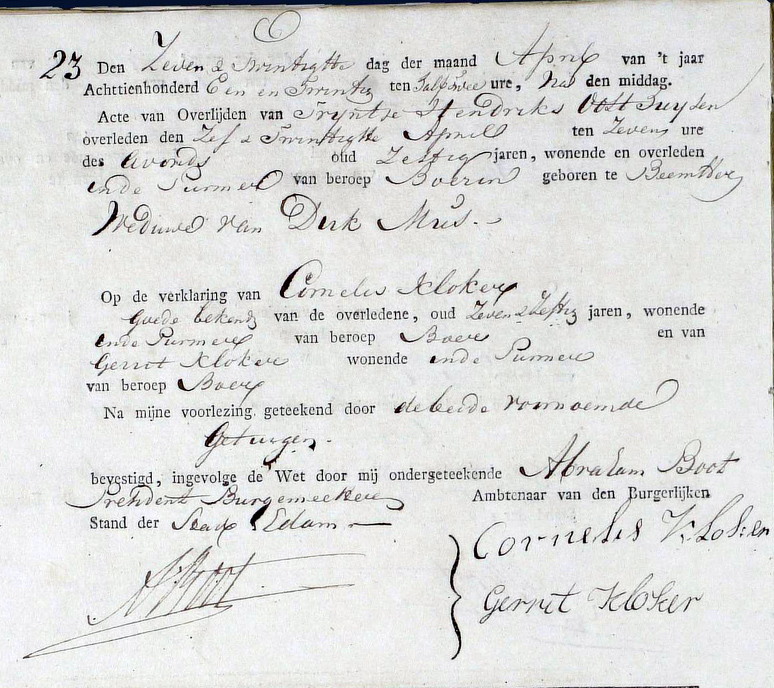 23 Den Zeven & Twintigste dag der maand April van 't jaar
Achttienhonderd Een en Twintig ten half twee ure, Na den middag.
Acte van Overlijden van Tryntje Hendriks Oosthuysen
overleden den Zes & Twintigste April ten Zeven ure
des Avonds oud Zestig jaren, wonende en overleden
in de Purmer van beroep Boerin geboren te Beemster
Weduwe van Dirk Mus.
Op de verklaring van Cornelis Kloker
Goede bekende van de overledene, oud Zeven & Zestig jaren, wonende
in de Purmer van beroep Boer en van
Gerrit Kloker wonende in de Purmer
van beroep Boer
Na mijne voorlezing geteekend door de beide voornoemde
Getuigen.
bevestigd, ingevolge de Wet door mij ondergeteekende Abraham Boot
President Burgemeester Ambtenaar van den Burgerlijken
Stand der Stad Edam
Cornelis Kloker
A Boot
Gerret Kloker